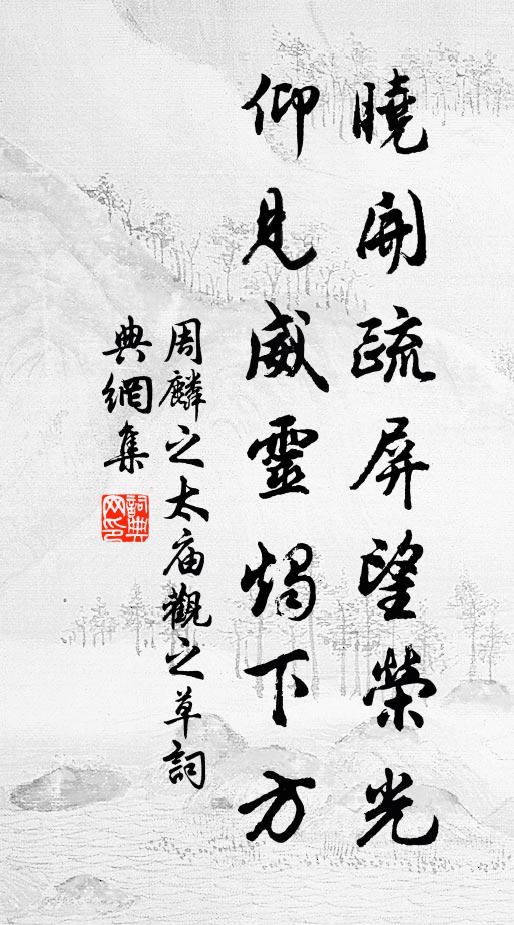 曉開疏屏望榮光
仰見威靈燭下方
周麟之太庙觀之草詞
典網集
詞典網印